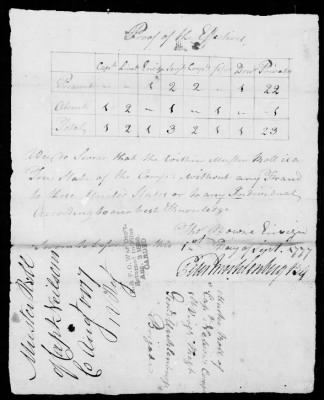 Proof of the Effectives
Capt. Lieut Ensign Serjt Corpl fifer Drum Privates
Present — — 1 2 2 — 1 22
Absent 1 2 — 1 — — 1
Total 1 2 1 3 2 1 1 23
We do Swear that the within Muster Roll is a
True State of the Company without any fraud
to these United States or to any Individual
According to our best Knowledge
Thos Browne Ensign
Sworn before me this Day of Sept. 1777
Peter Muhlenberg B.G.
Muster Roll
of Capt Nelson
Co Augt 1777
11 Regt
CARDED
Muster Roll of
Capt Nelsons Compy
Regt
Genl Muhlenbergs
Brigade